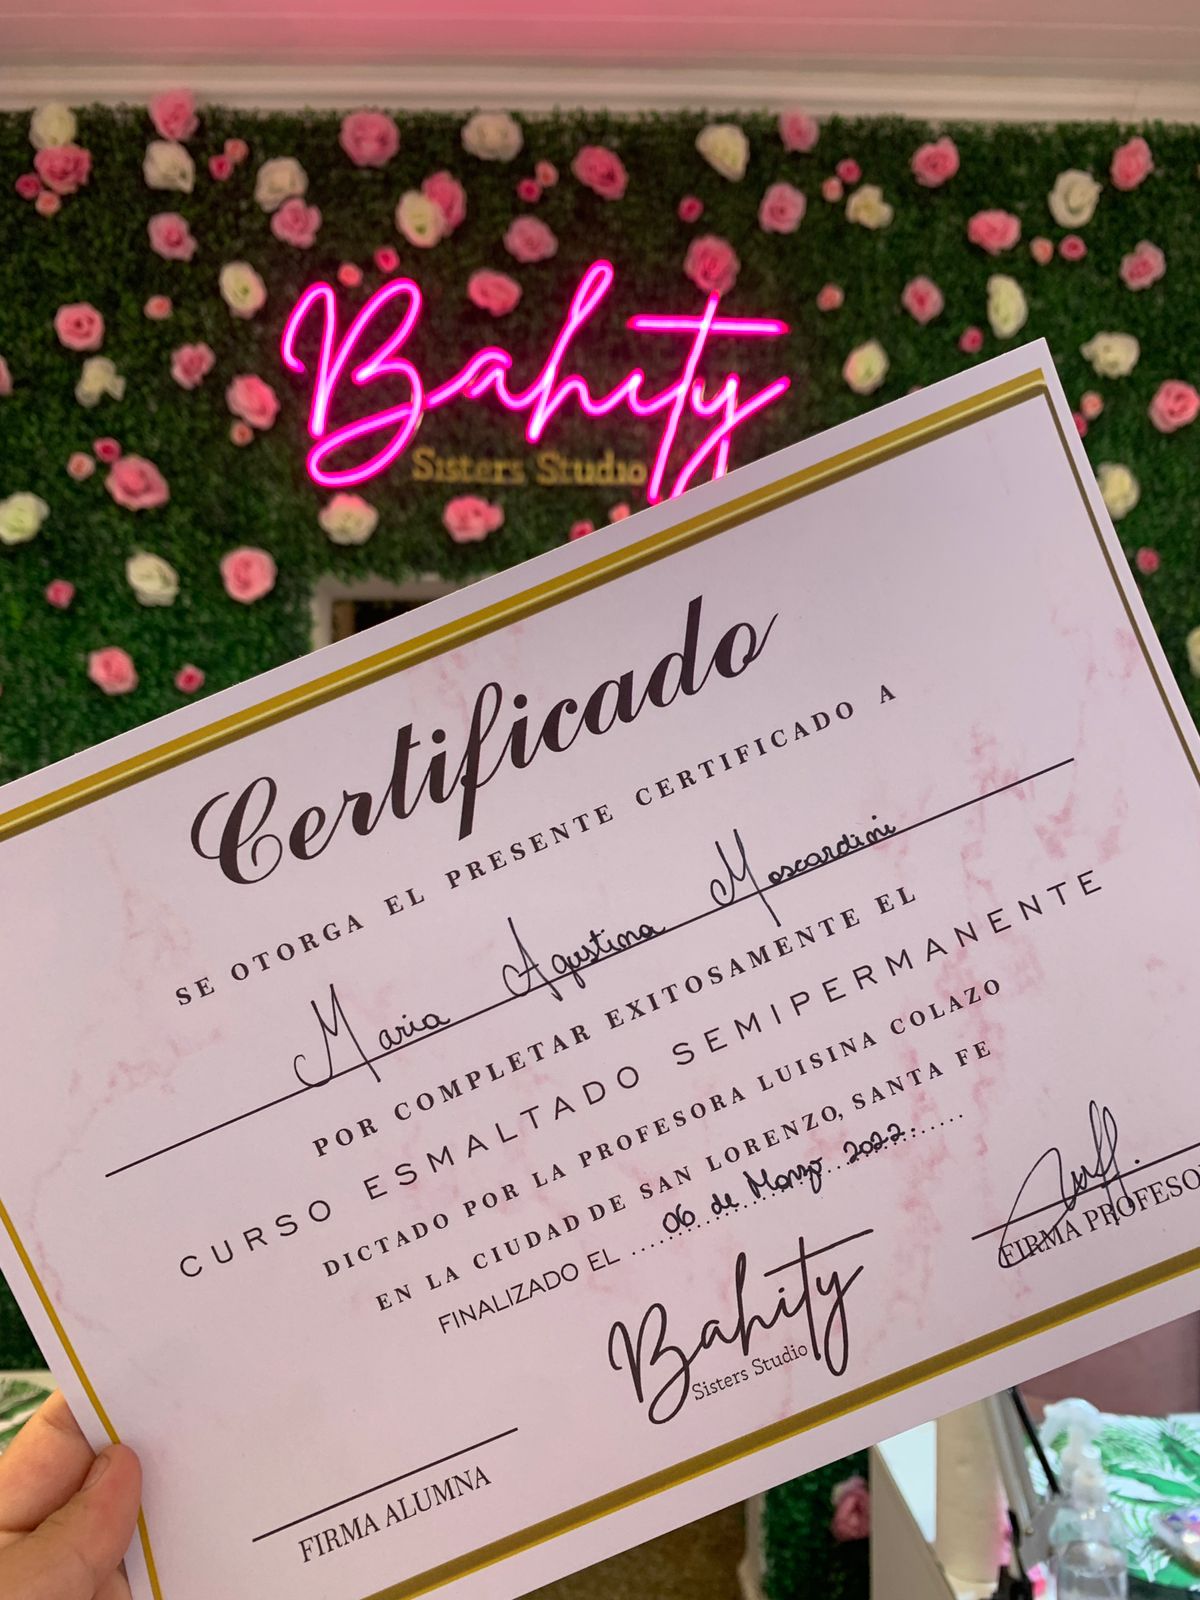 Bahity
Sisters Studio
Certificado
SE OTORGA EL PRESENTE CERTIFICADO A
Maria Agustina Moscardini
POR COMPLETAR EXITOSAMENTE EL
CURSO ESMALTADO SEMIPERMANENTE
DICTADO POR LA PROFESORA LUISINA COLAZO
EN LA CIUDAD DE SAN LORENZO, SANTA FE
FINALIZADO EL 06 de Marzo 2022.
FIRMA PROFESO
Bahity
Sisters Studio
FIRMA ALUMNA